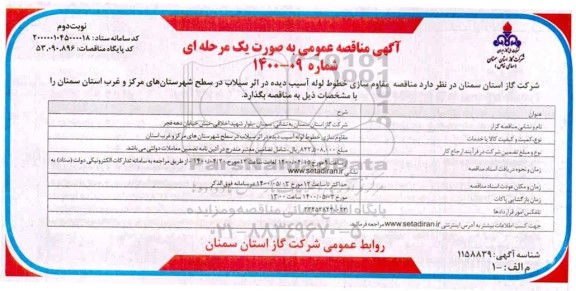 نوبت دوم
کد سامانه ستاد: ۲۰۰۰۰۰۱۰۴۵۰۰۰۰۱۸
کد پایگاه مناقصات: ۵۳.۰۹۰.۸۹۶
آگهی مناقصه عمومی به صورت یک مرحله ای
شماره ۰۹-۱۴۰۰
شرکت گاز استان سمنان
شرکت گاز استان سمنان در نظر دارد مناقصه مقاوم سازی خطوط لوله آسیب دیده در اثر سیلاب در سطح شهرستان‌های مرکز و غرب استان سمنان را
با مشخصات ذیل به مناقصه بگذارد.
عنوان شرح
نام و نشانی مناقصه گزار شرکت گاز استان سمنان به نشانی سمنان بلوار شهید اخلاقی نبش خیابان دهه فجر
نوع کمیت و کیفیت کالا یا خدمات مقاوم سازی خطوط لوله آسیب دیده در اثر سیلاب در سطح شهرستان های مرکز و غرب استان
نوع و مبلغ تضمین شرکت در فرآیند ارجاع کار مبلغ ۸۲۲.۵۰۸.۱۰۰ ریال - شامل تضامین معتبر مندرج در آئین نامه تضمین معاملات دولتی می باشد.
زمان و نحوه دریافت اسناد مناقصه از طریق مراجعه به سامانه تدارکات الکترونیکی دولت (ستاد) به نشانی www.setadiran.ir
زمان و مکان عودت اسناد مناقصه حداکثر تا ساعت ۱۲ مورخ ۱۴۰۰/۰۵/۰۲ در سامانه فوق الذکر
زمان بازگشایی پاکات مورخ ۱۴۰۰/۰۵/۰۳ ساعت ۱۳:۰۰
تلفکس امور قراردادها
جهت کسب اطلاعات بیشتر به آدرس اینترنتی www.setadiran.ir مراجعه فرمائید.
ParsNamadData
پایگاه اطلاع رسانی مناقصه و مزایده
۰۲۱-۸۸۳۴۹۶۷۰-۵
روابط عمومی شرکت گاز استان سمنان
شناسه آگهی: ۱۱۵۸۸۳۹
م الف: ۱۰